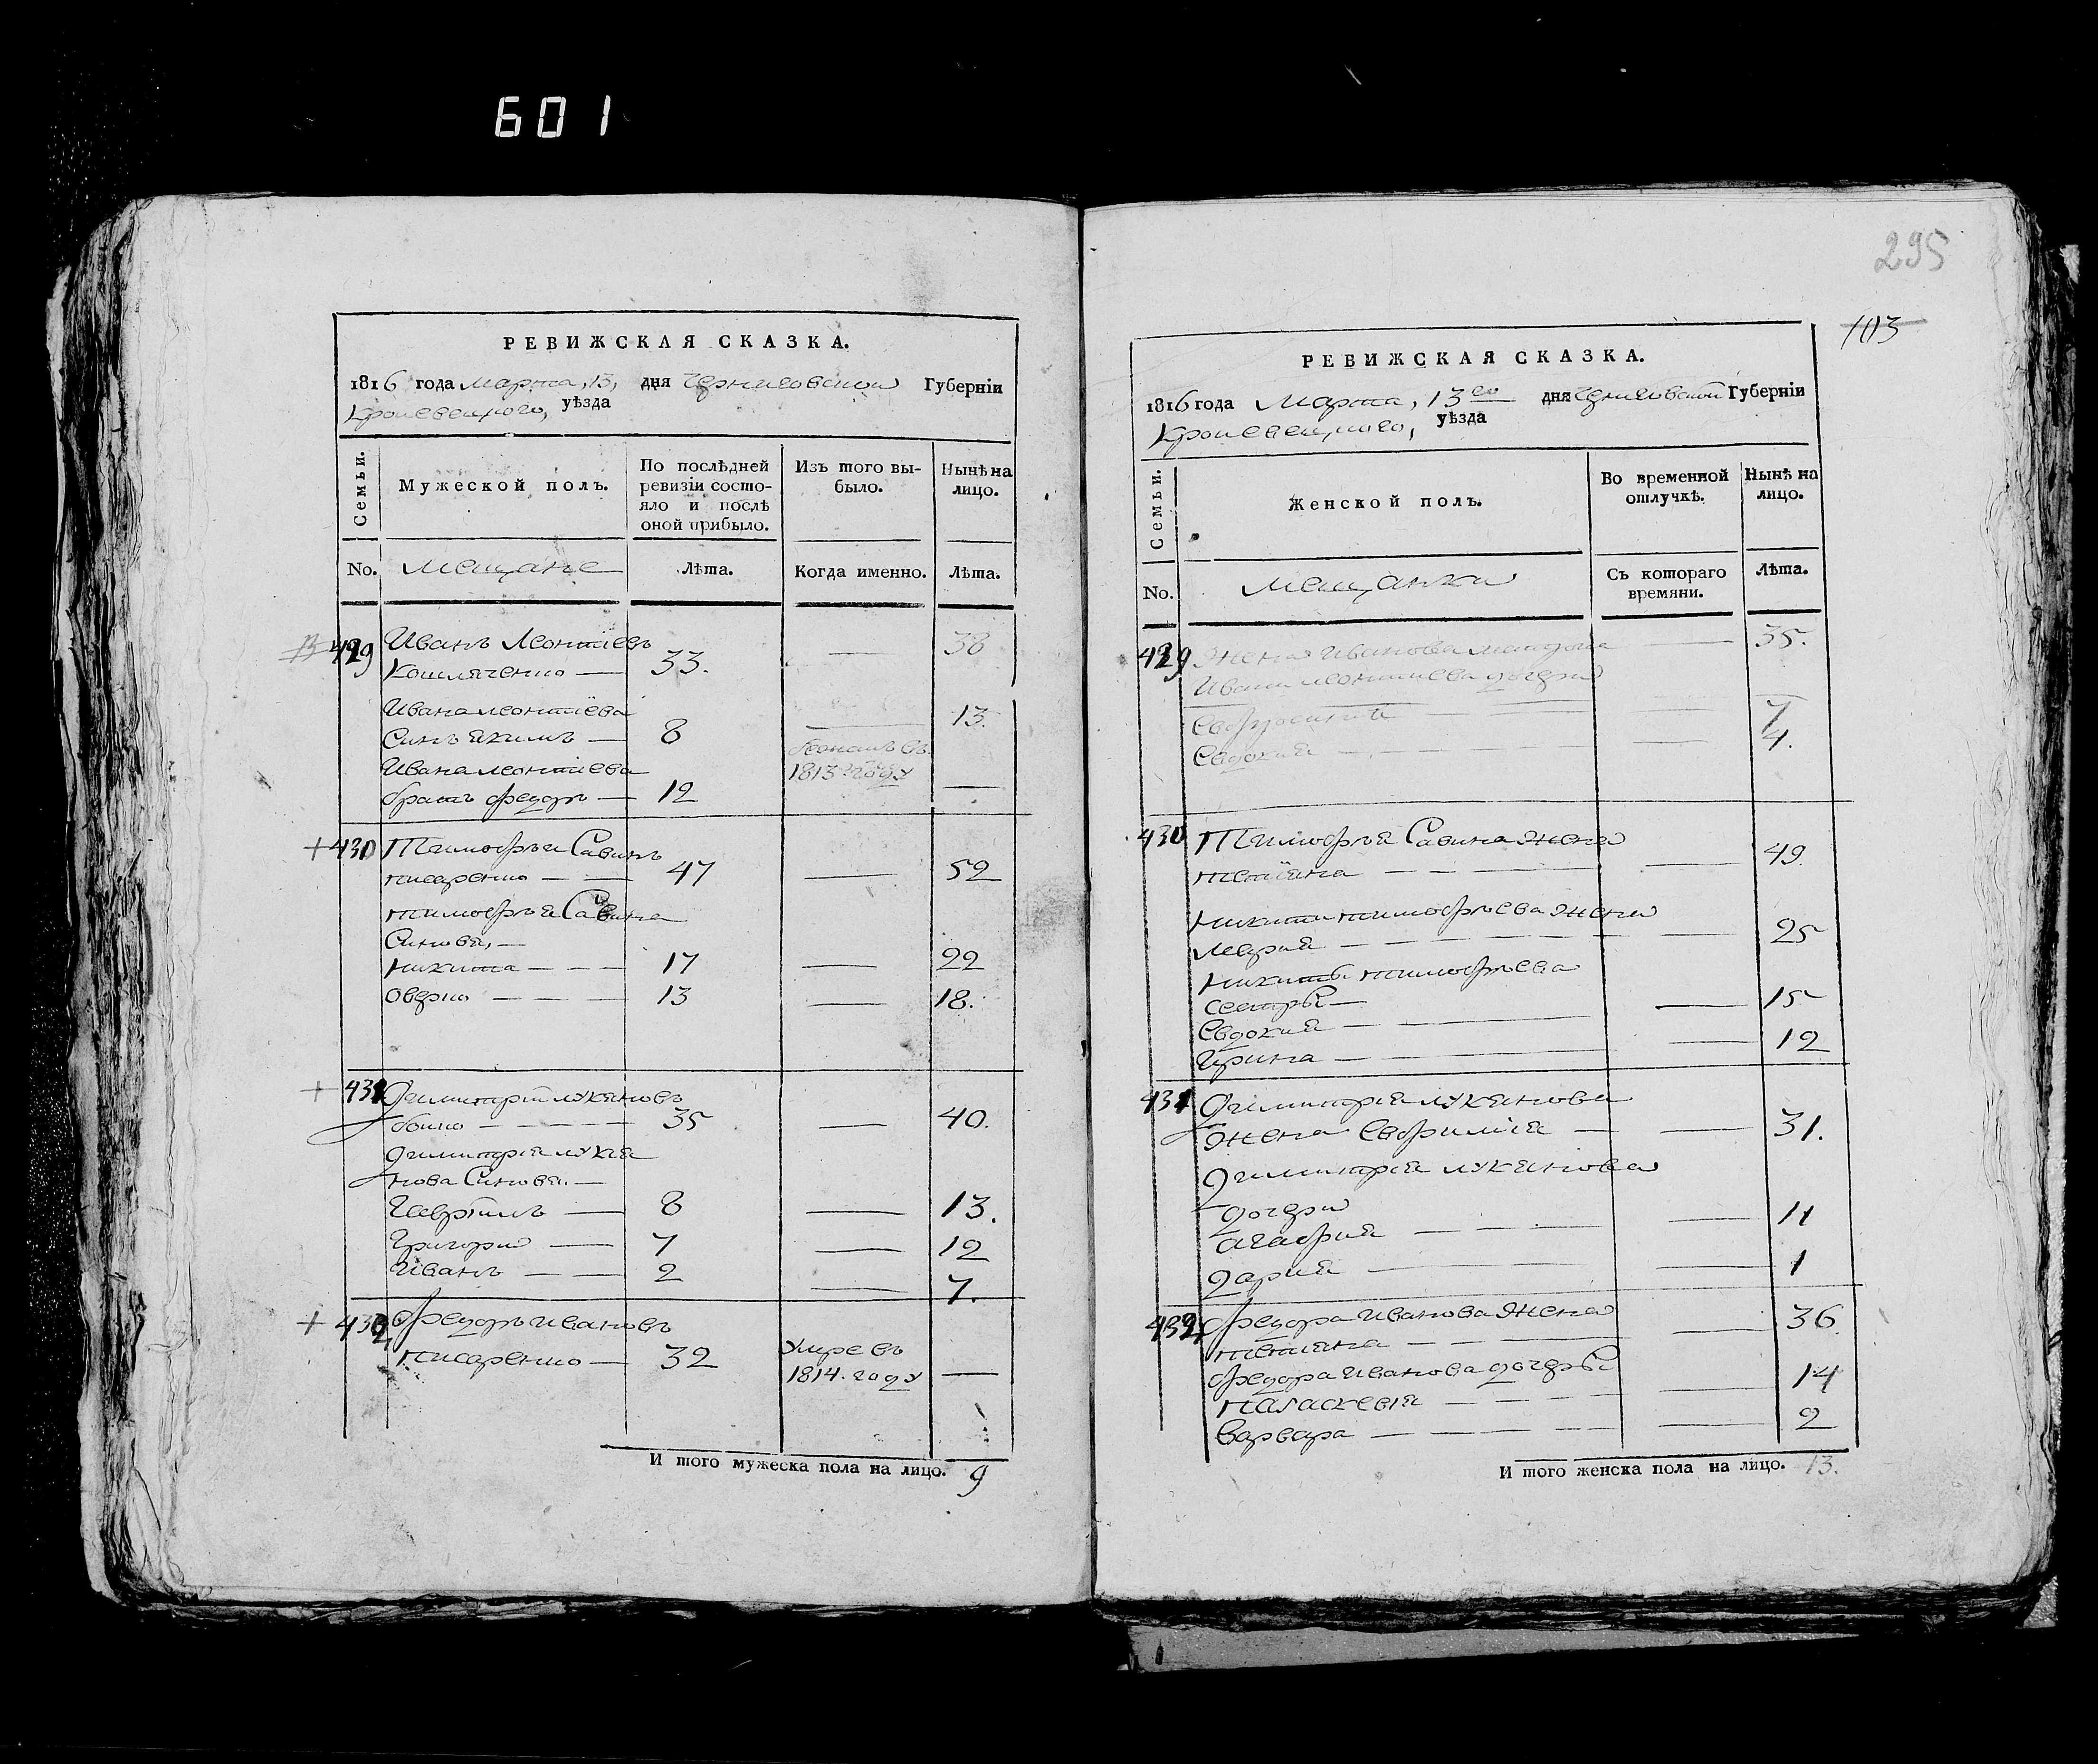 601
РЕВИЖСКАЯ СКАЗКА.
1816 года марта, 13, дня Черниговской Губерніи
Кролевецкого, уѣзда
Семьи.
Мужеской полъ.
По послѣдней ревизіи состо-
яло и послѣ
оной прибыло.
Изъ того вы-
было.
Нынѣ на
лицо.
No. мещане Лѣта. Когда именно. Лѣта.
429 Иванъ Леонтіевъ 38
— 33. —
Ивана леонтіева 13.
Синъ якимъ — 8 —
Ивана леонтіева 1813 году
братъ федоръ — 12 —
+ 430 Тимофѣи Савинъ
писаренко — — 47 — 52
тимофѣя Савина
Синовя, —
никита — — — 17 — 22
овдрю — — — 13 — 18.
+ 431 Димитрій лукяновъ
бойко — — — — 35 — 40.
димитрія лукя
нова Синовя. —
Гавріилъ — 8 — 13.
Григорий — 7 — 12
Иванъ — — 2 — 7.
+ 432 федоръ ивановъ
писаренко — 32 умре въ
1814. году —
И того мужеска пола на лицо. 9
295
103
РЕВИЖСКАЯ СКАЗКА.
1816 года Марта, 13го дня Черниговской Губерніи
Кролевецкого, уѣзда
Семьи.
Женской полъ.
Во временной
отлучкѣ.
Нынѣ на
лицо.
No. мещанки Съ котораго
времяни. Лѣта.
429 жена иванова — 35.
Ивана леонтиева дочери
Евфросиния — — — 7
Евдокия — — — 4.
430 Тимофѣя Савина жена
татияна — — — — 49.
никити тимофѣева жена
мария — — — — 25
никиты тимофѣева
сестры —
Евдокия — — — 15
Ирина — — — 12
431 Димитрия лукянова
жена Евфимия — — 31.
димитрия лукянова
дочери
агафия — — — — 11
дария — — — 1
432 федора иванова жена 36
татияна — — — —
федора иванова дочеры
параскевия — — — — 14
варвара — — — — 2
И того женска пола на лицо. 13.